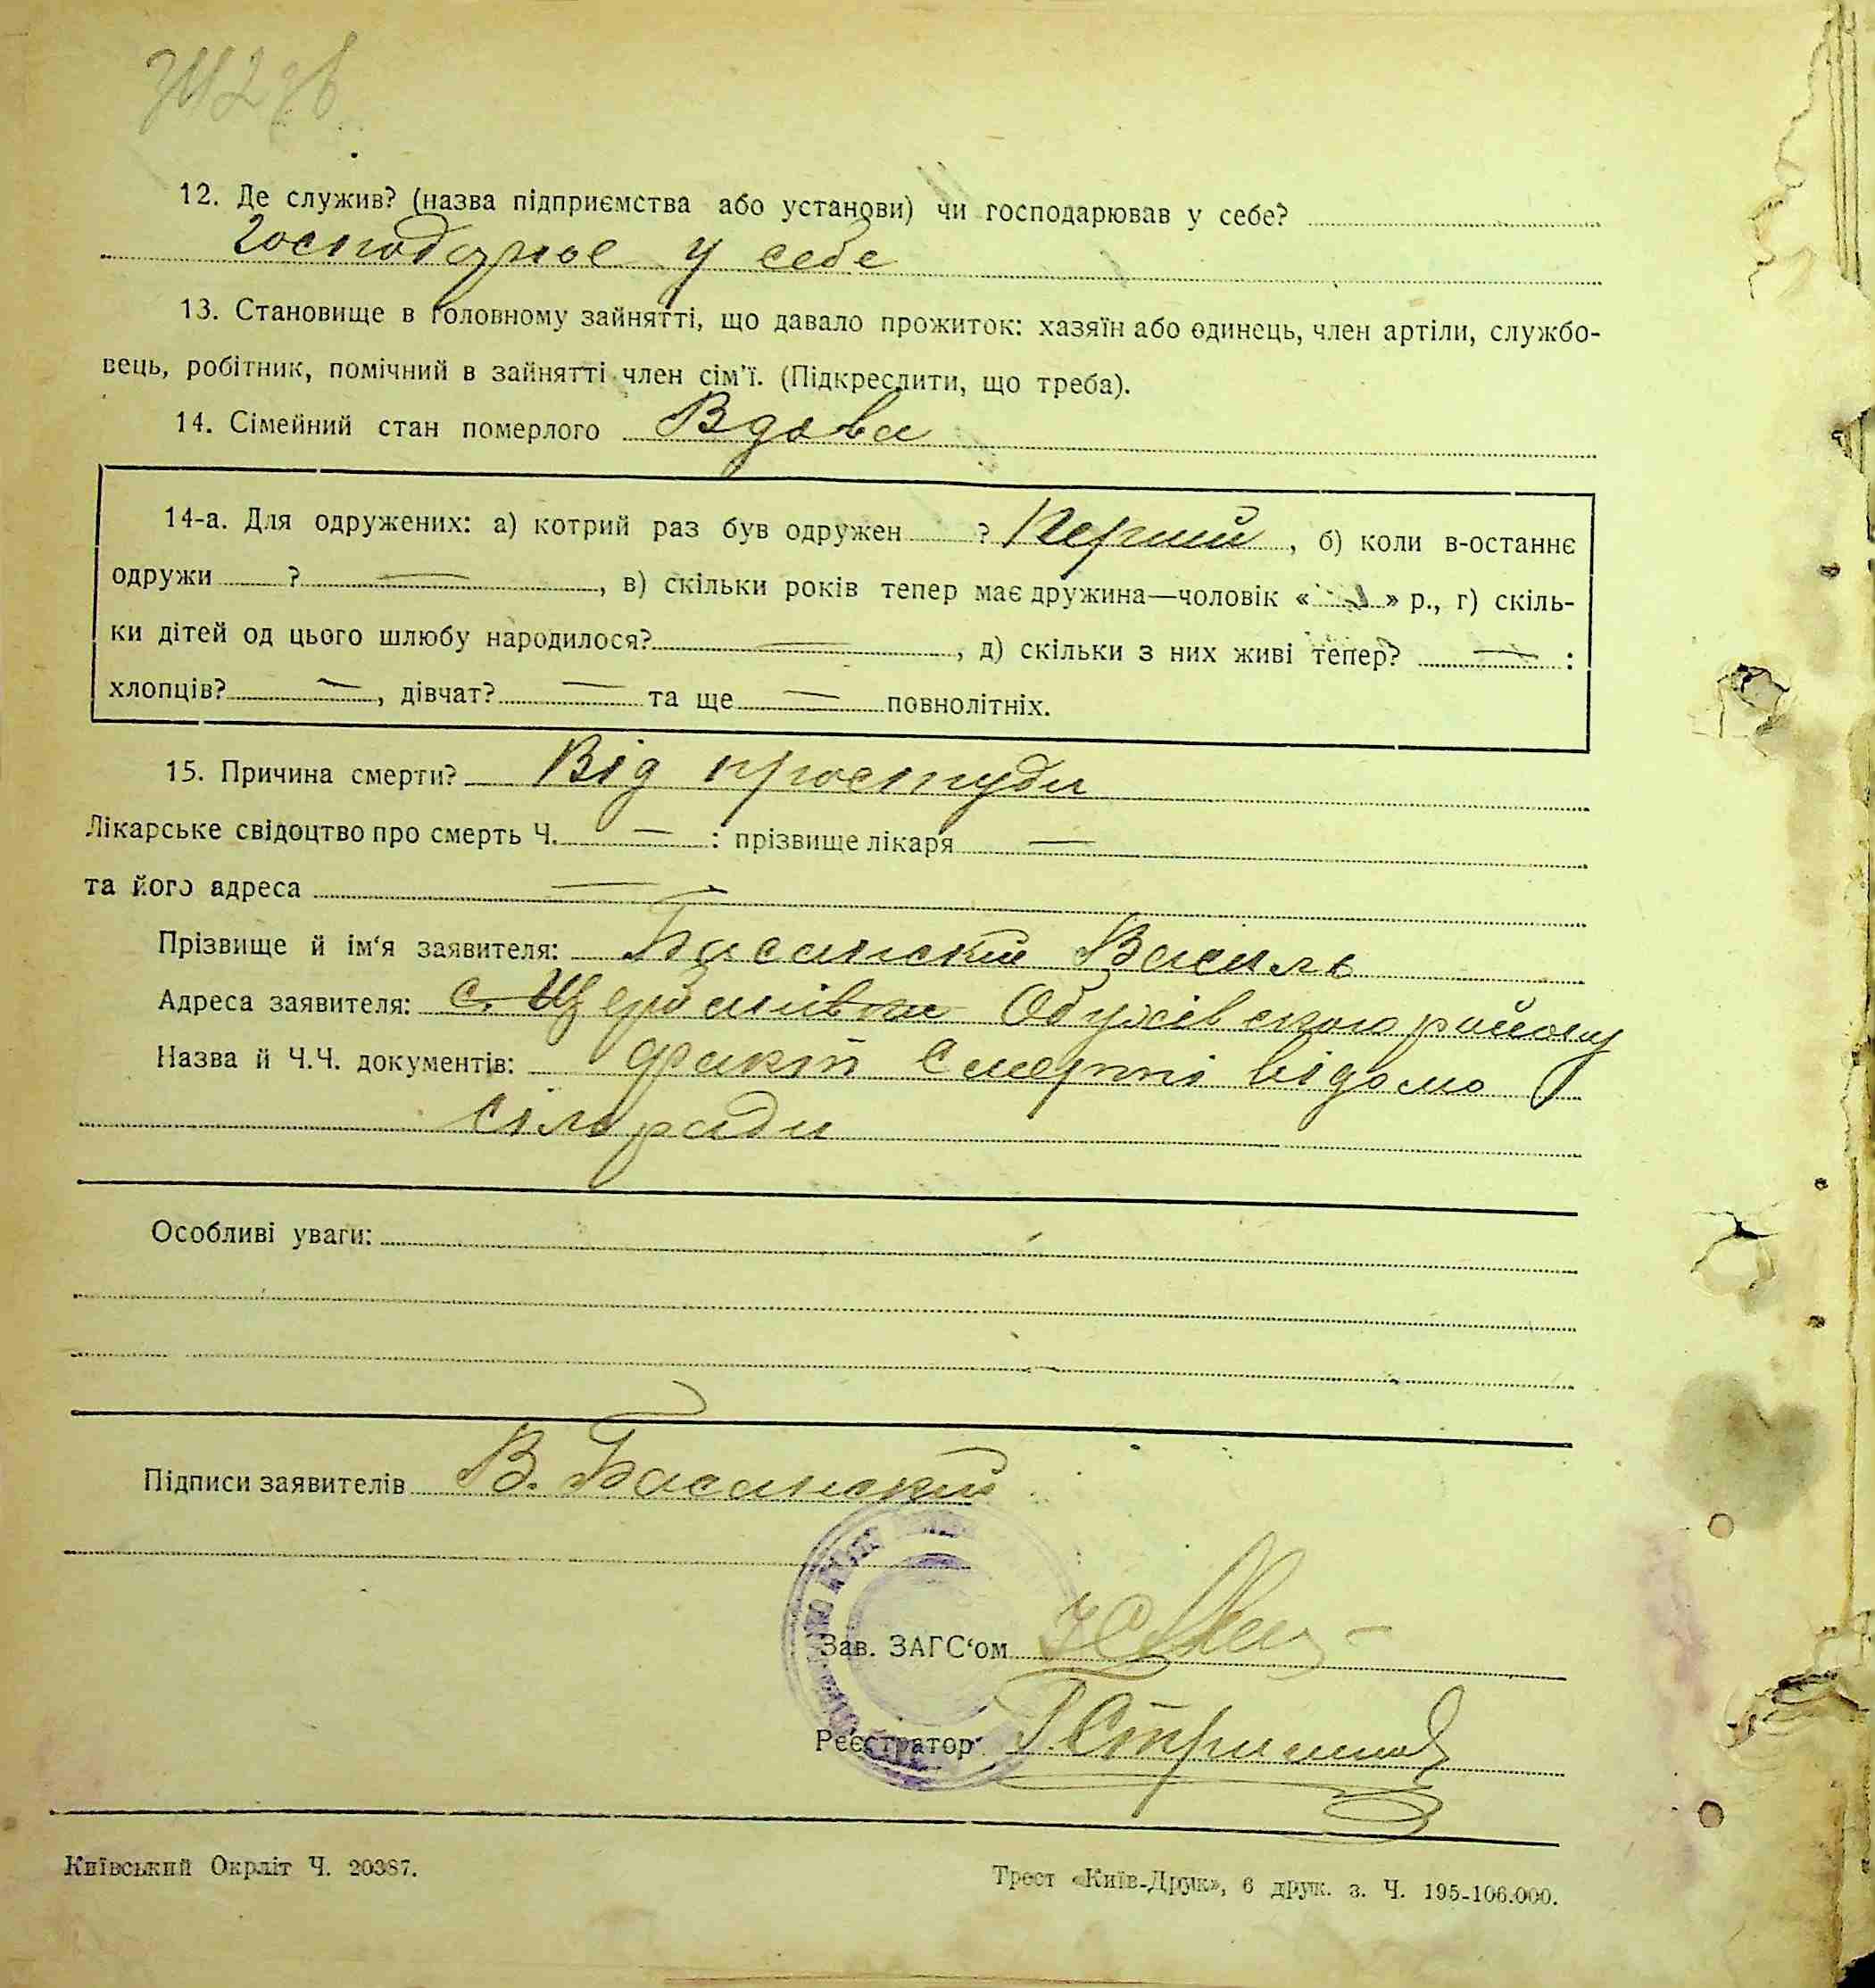 12. Де служив? (назва підприємства або установи) чи господарював у себе?
Господарює у себе
13. Становище в головному зайнятті, що давало прожиток: хазяїн або одинець, член артіли, службо-
вець, робітник, помічний в зайнятті член сім'ї. (Підкреслити, що треба).
14. Сімейний стан померлого Вдова
14-а. Для одружених: а) котрий раз був одружен ? Перший, б) коли в-останнє
одружи ? —, в) скільки років тепер має дружина—чоловік « » р., г) скіль-
ки дітей од цього шлюбу народилося? —, д) скільки з них живі тепер? — :
хлопців? —, дівчат? — та ще — повнолітніх.
15. Причина смерти? Від простуди
Лікарське свідоцтво про смерть Ч. — : прізвище лікаря —
та його адреса —
Прізвище й ім'я заявителя: Басанский Василь
Адреса заявителя: с. Щербанівка Обухівського району
Назва й Ч.Ч. документів: факт смерті відомо
сільради
Особливі уваги:
Підписи заявителів В. Басанский
Зав. ЗАГС'ом
Реєстратор
Київський Окрліт Ч. 20387.
Трест «Київ-Друк», 6 друк. з. Ч. 195-106.000.